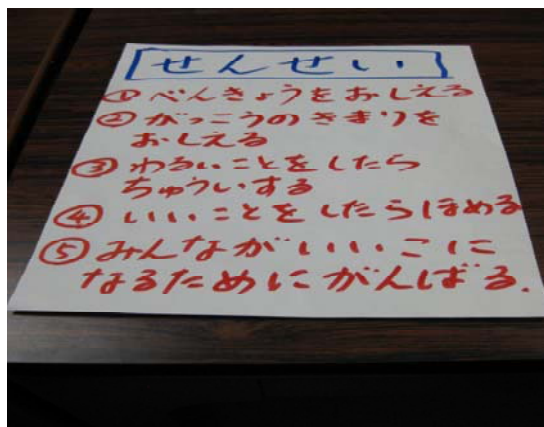 せんせい
①べんきょうをおしえる
②がっこうのきまりを
おしえる
③わるいことをしたら
ちゅういする
④いいことをしたらほめる
⑤みんながいいこに
なるためにがんばる.